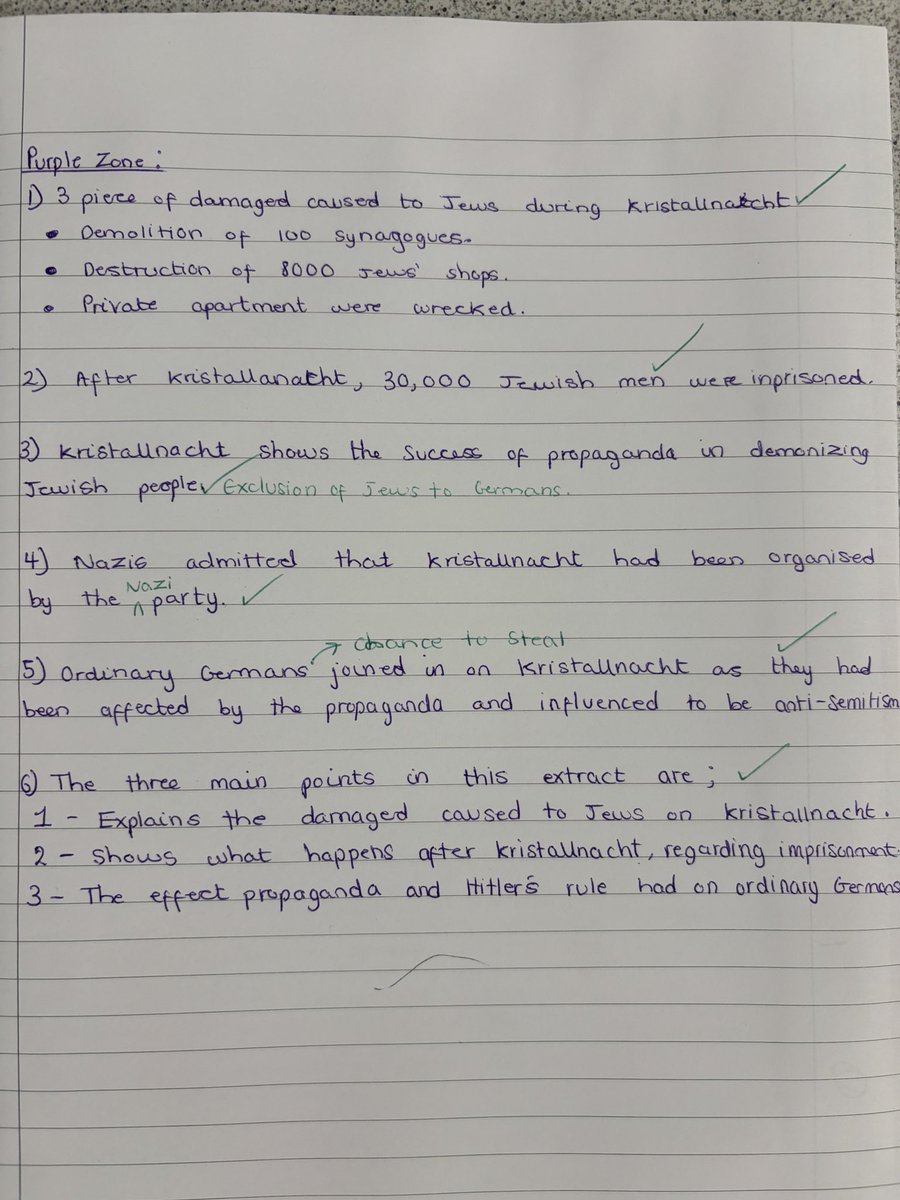 Purple Zone :
1) 3 piece of damaged caused to Jews during Kristallnatcht
• Demolition of 100 synagogues.
• Destruction of 8000 Jews' shops.
• Private apartment were wrecked.
2) After Kristallanatcht, 30,000 Jewish men were inprisoned.
3) Kristallnacht shows the success of propaganda in demonizing
Jewish people. Exclusion of Jews to Germans.
4) Nazis admitted that Kristallnacht had been organised
by the Nazi party.
→ chance to steal
5) Ordinary Germans' joined in on Kristallnacht as they had
been affected by the propaganda and influenced to be anti-semitism
6) The three main points in this extract are ;
1 - Explains the damaged caused to Jews on Kristallnacht.
2 - Shows what happens after Kristallnacht, regarding imprisonment.
3 - The effect propaganda and Hitler's rule had on ordinary Germans